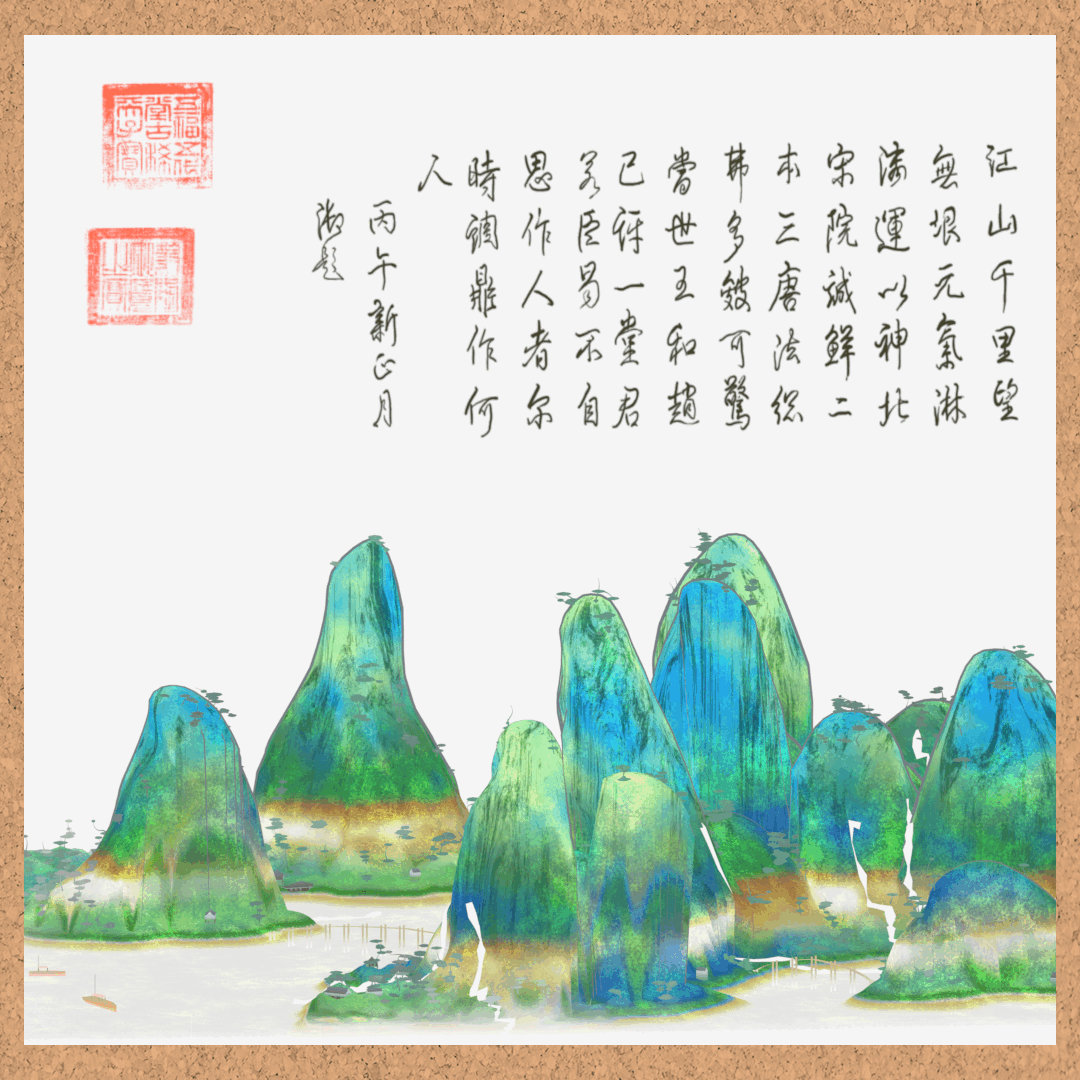 江山千里望
無垠元氣淋
漓運以神北
宋院誠鮮二
本三唐法總
弗多皴可驚
當世王和趙
已訝一堂君
若臣曷不自
思作人者尔
時調鼎作何
人
丙午新正月
御題
五福五代
堂古稀
天子寶